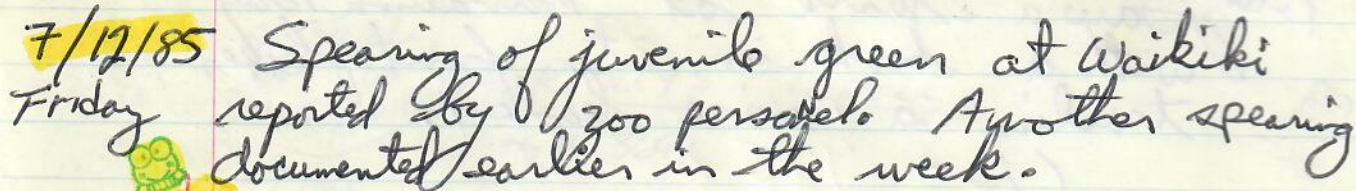 7/12/85 Spearing of juvenile green at Waikiki
Friday reported by zoo personel. Another spearing
documented earlier in the week.